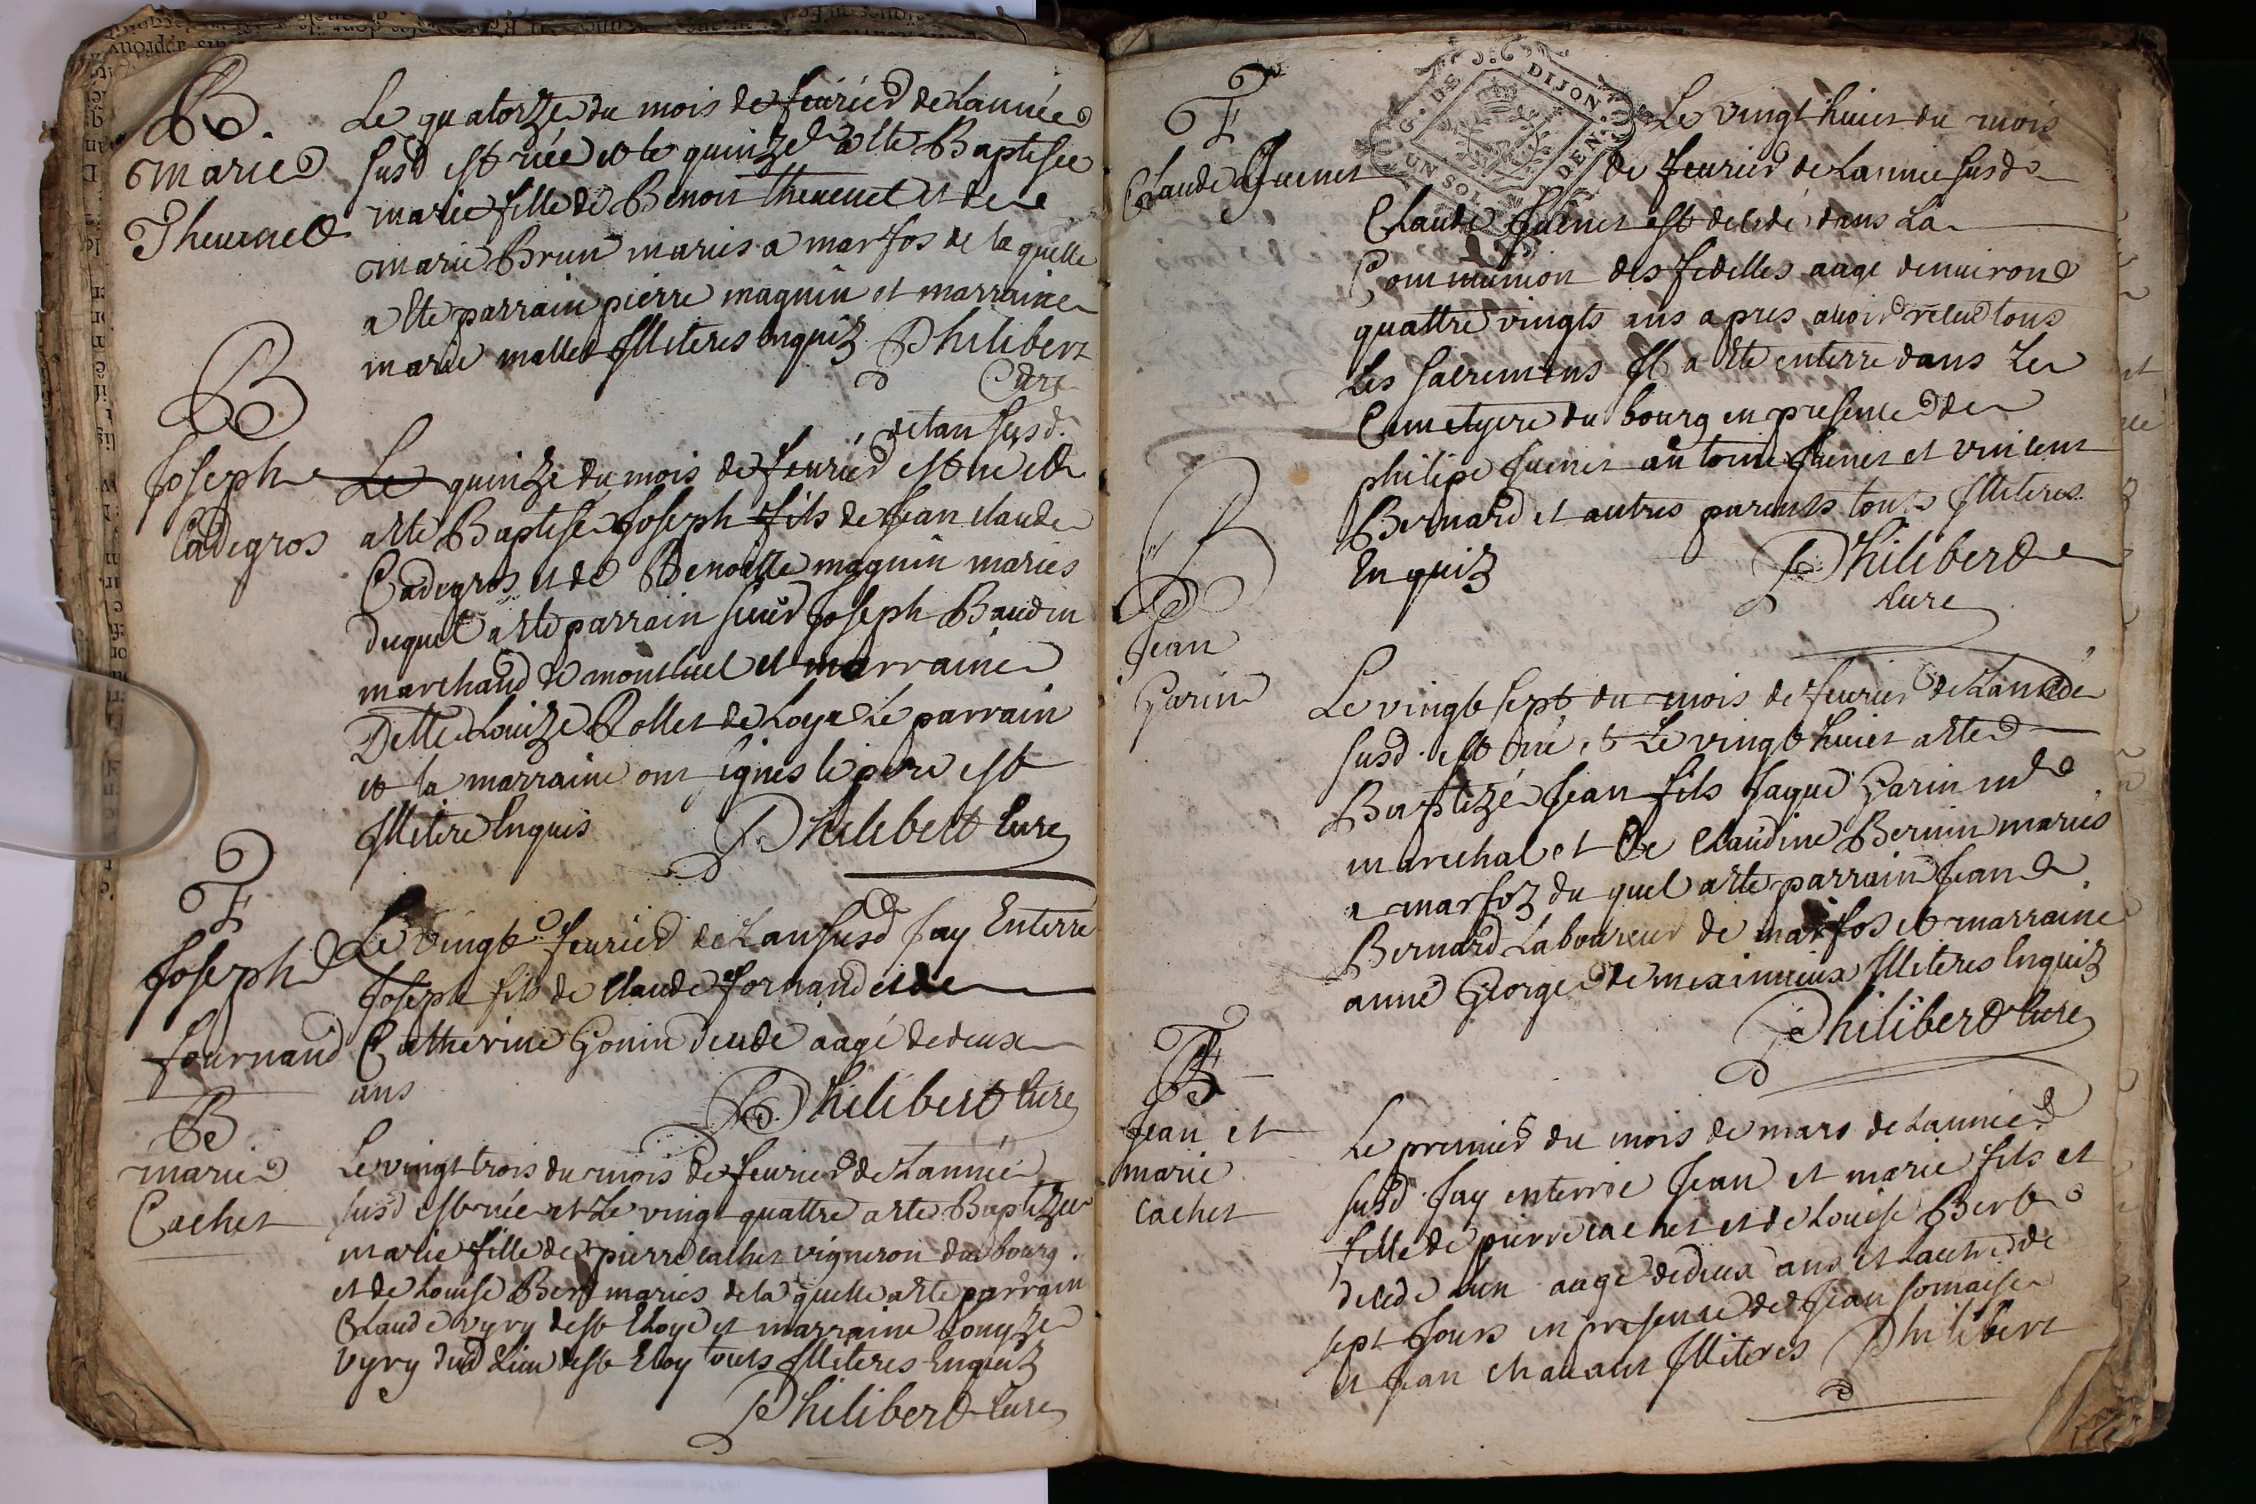 B.
marie
Theuenet
Le quatorze du mois de feurier de Lannée
susd est née et le quinze a esté Baptisée
marie fille de Benoit theuenet et de
marie Brun mariés a marfos de laquelle
a ete parrain pierre maguin et marraine
marie mallet illiteres enquiz Philibert
Curé
B
Joseph
Cadegros
de lan susd.
Le quinze du mois de feurier est né et
a ete Baptisé Joseph fils de Jean claude
Cadegros et de Benoitte maguin mariés
duquel a ete parrain sieur Joseph Baudin
marchand de montluel et marraine
Delle Louize Rollet de Loye Le parrain
et la marraine ont signés le pere est
illitere Enquis Philibert Curé
F
Joseph
fournand
Le vingt feurier de Lan susd Jay Enterré
Joseph fils de Claude fornand et de
Catherine Gonin decedé aagé de deux
ans
Philibert Curé
B
marie
Cachet
Le vingt trois du mois de feurier de Lannée
susd est née et Le vingt quattre a ete Baptizée
marie fille de pierre cachet vigneron du bourg
et de Louise Bert mariés de la quelle a ete parrain
Claude vyvy de st Eloye et marraine Louyze
vyvy dud Lieu de st Eloy touts illiteres Enquiz
Philibert Curé
F
Claude Juenet
G. DE DIJON
UN SOL DEN.
Le vingt huict du mois
de feurier de Lannée susd
Claude Juenet est decedé dans La
Communion des fidelles aagé denuiron
quattre vingts ans apres auoir receu tous
Les sacremens Il a ete enterré dans Le
Cimetyere du bourg en presence de
philipe Juenet antoine Juenet et vincent
Bernard et autres parents touts illiteres
Enquiz
Philibert
Curé
B
Jean
Garin
Le vingt sept du mois de feurier de Lannée
susd. est né et Le vingt huict a ete
Baptizé Jean fils Jaque Garin me
marechal et de Claudine Bernin mariés
a marfoz du quel a ete parrain Jean
Bernard Laboureur de marfos et marraine
anne George de meximieux illiteres Enquiz
Philibert Curé
F
Jean et
marie
cachet
Le premier du mois de mars de Lannée
susd. Jay enterré Jean et marie fils et
fille de pierre cachet et de Louise Bert
decedé Lun aagé de deux ans et Lautre de
sept Jours en presence de Jean
et Jean chauant illiteres Philibert